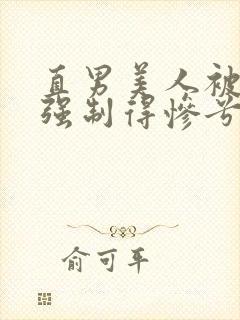 直男美人被
强制得惨兮
俞可平